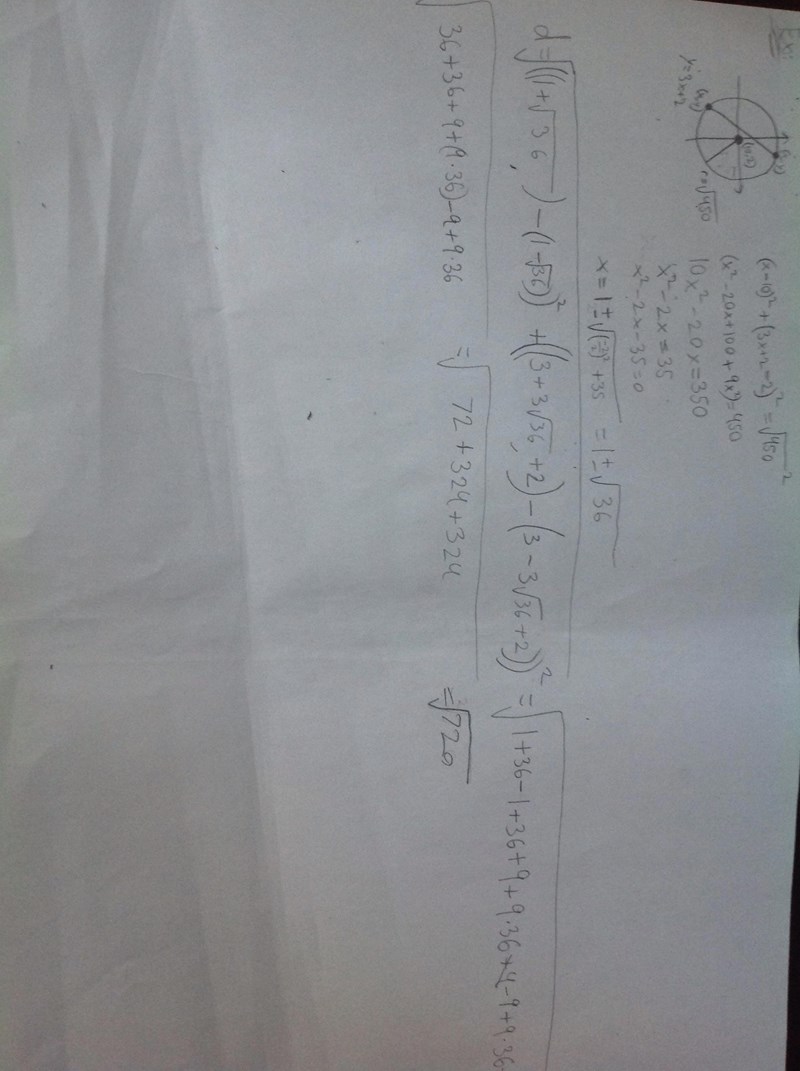 Ex:
(x,y)
(10,2)
(x,y)
y=3x+2
r=√450
(x-10)² + (3x+2-2)² = √450²
(x² - 20x + 100 + 9x²) = 450
10x² - 20x = 350
x² - 2x = 35
x² - 2x - 35 = 0
x = 1 ± √(-2/2)² + 35 = 1 ± √36
d = √((1+√36) - (1-√36))² + ((3+3√36+2) - (3-3√36+2))² = √1+36-1+36+9+9·36+4-9+9·36
√36+36+9+(9·36)-9+9·36 = √72+324+324 = √720